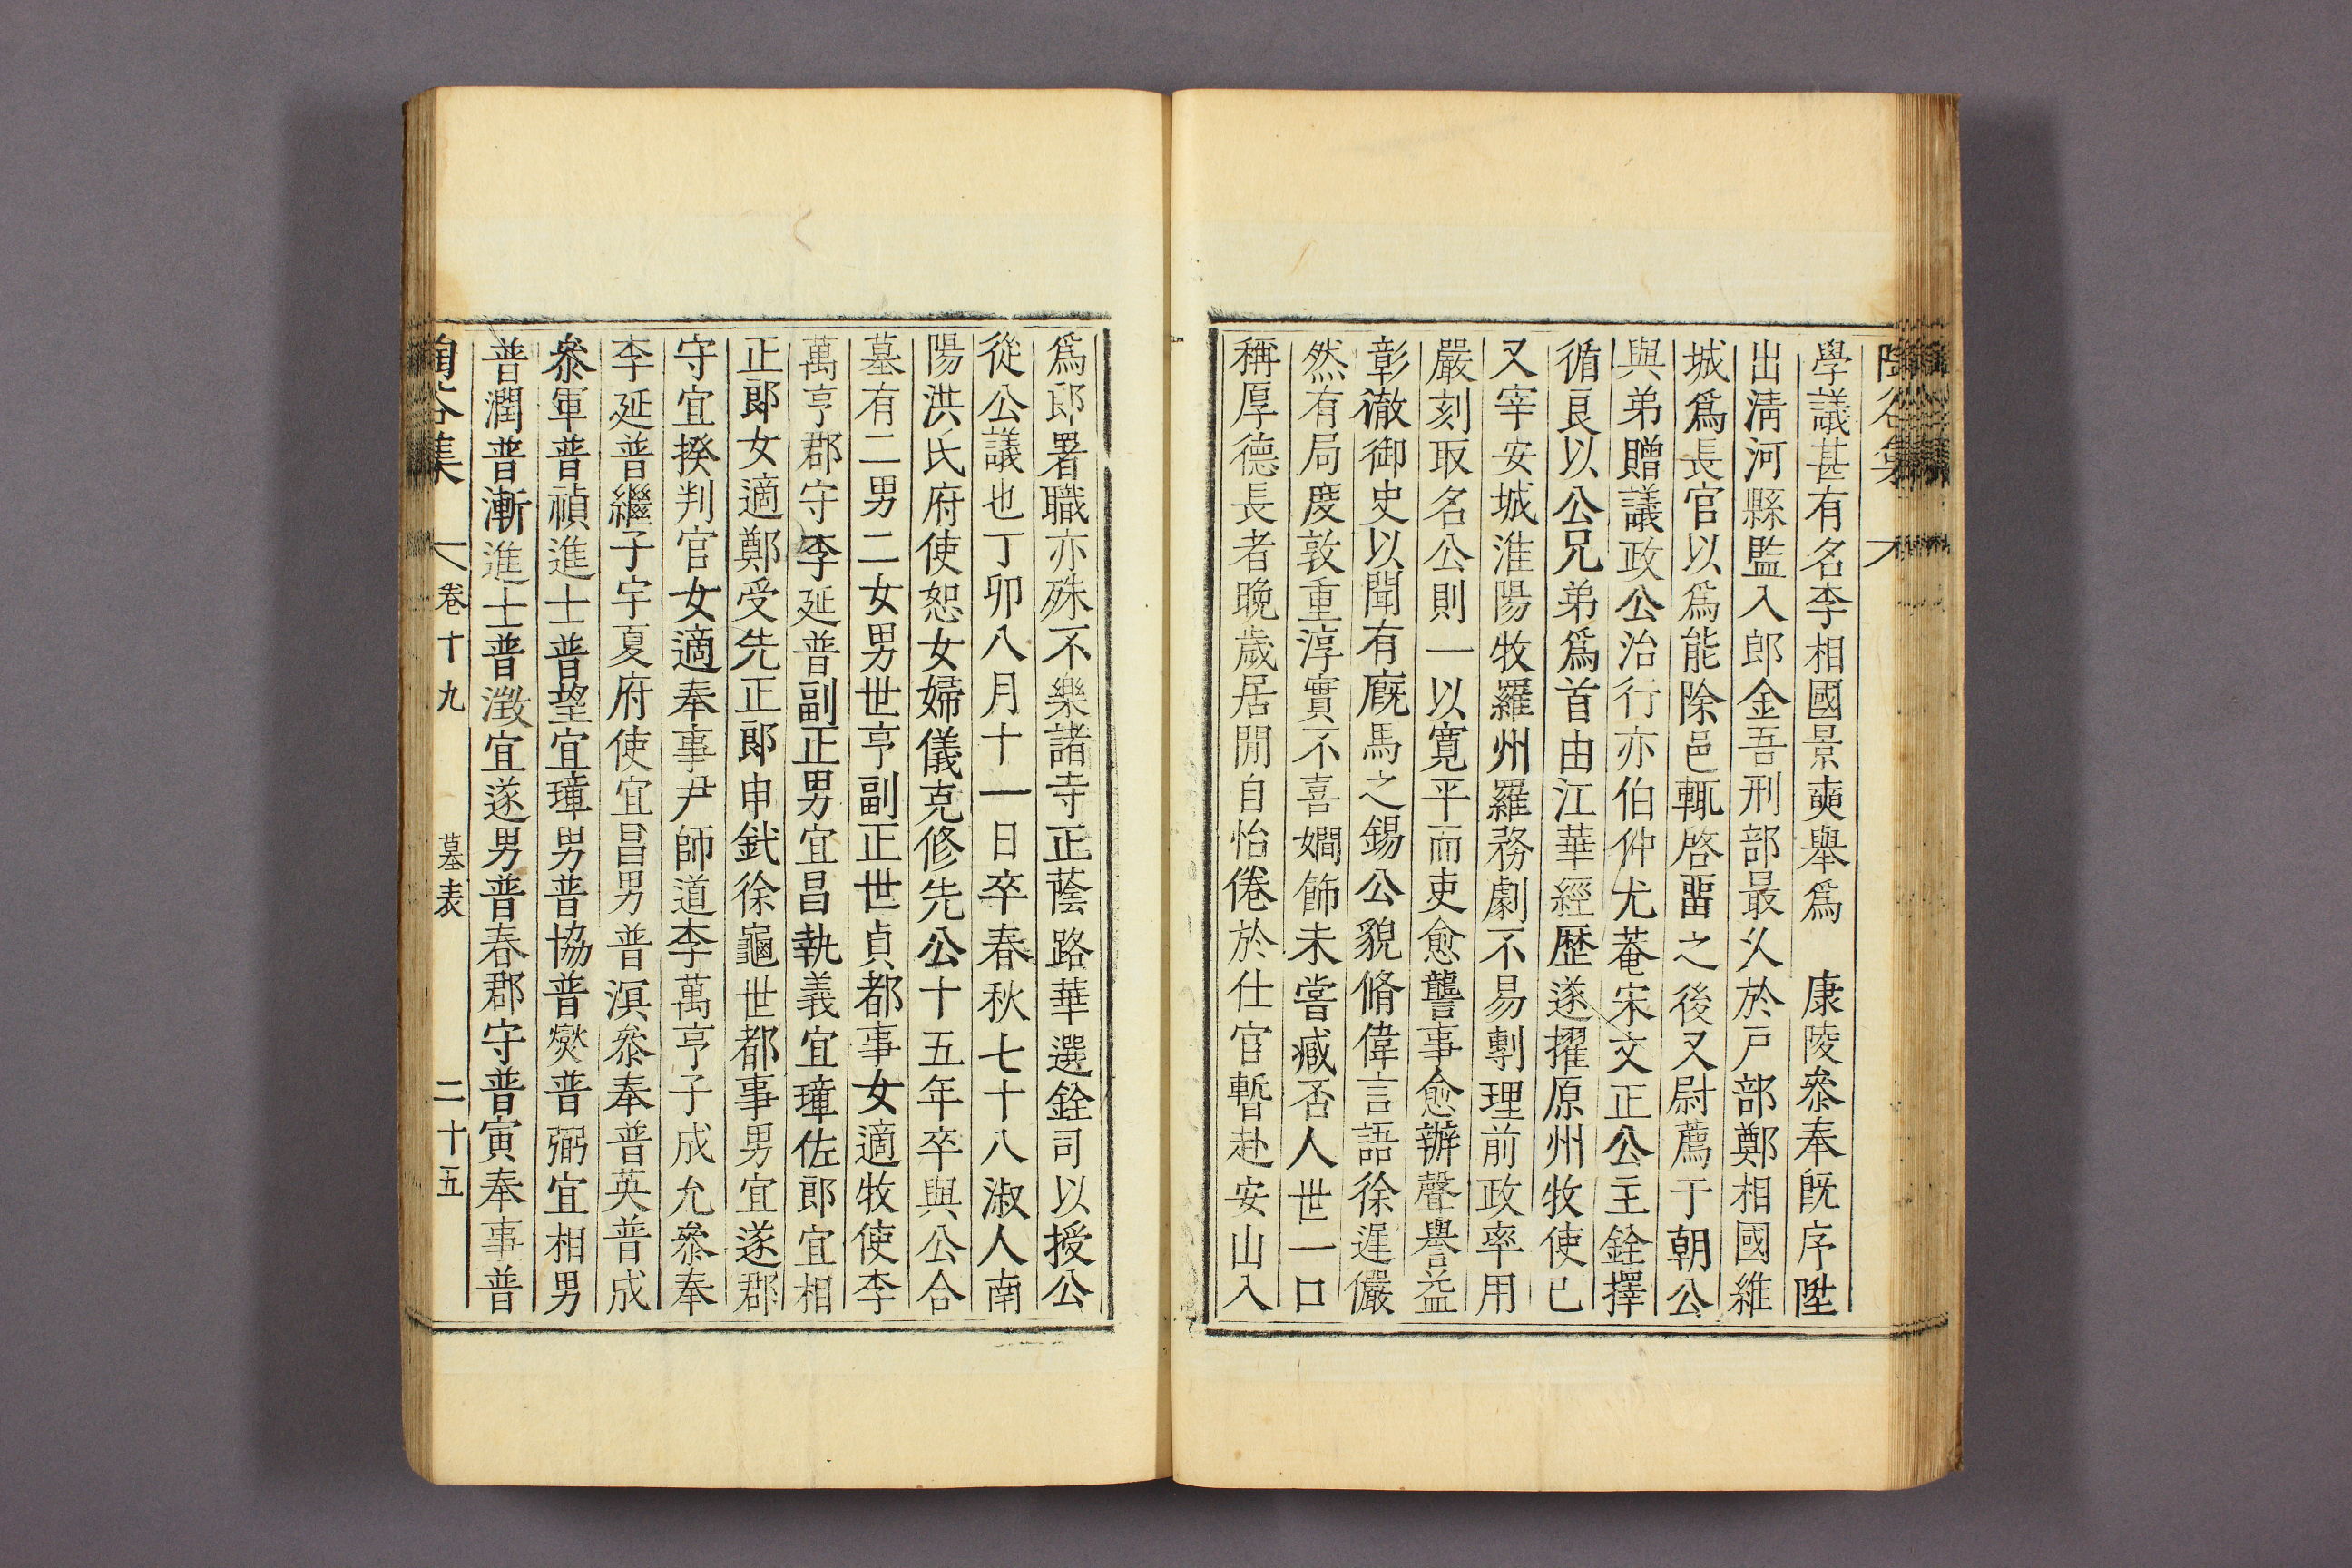 學議甚有名李相國景奭舉爲　康陵叅奉旣序陞
出淸河縣監入郎金吾刑部最乆於戶部鄭相國維
城爲長官以爲能除邑輒啓畱之後又尉薦于朝公
與弟贈議政公治行亦伯仲尤菴宋文正公主銓擇
循良以公兄弟爲首由江華經歷遂擢原州牧使已
又宰安城淮陽牧羅州羅務劇不易剸理前政率用
嚴刻取名公則一以寬平而吏愈讋事愈辦聲譽益
彰徹御史以聞有廐馬之錫公貌脩偉言語徐遲儼
然有局度敦重淳實不喜嫺飾未嘗臧否人世一口
稱厚德長者晩歲居閒自怡倦於仕官暫赴安山入
爲郎署職亦殊不樂諸寺正蔭路華選銓司以授公
從公議也丁卯八月十一日卒春秋七十八淑人南
陽洪氏府使恕女婦儀克修先公十五年卒與公合
墓有二男二女男世亨副正世貞都事女適牧使李
萬亨郡守李延普副正男宜昌執義宜璋佐郎宜相
正郎女適鄭受先正郎申鉽徐龜世都事男宜遂郡
守宜揆判官女適奉事尹師道李萬亨子成允叅奉
李延普繼子宇夏府使宜昌男普溟叅奉普英普成
叅軍普禎進士普望宜璋男普協普爕普弼宜相男
普潤普漸進士普澂宜遂男普春郡守普寅奉事普
陶谷集　卷十九　墓表　二十五